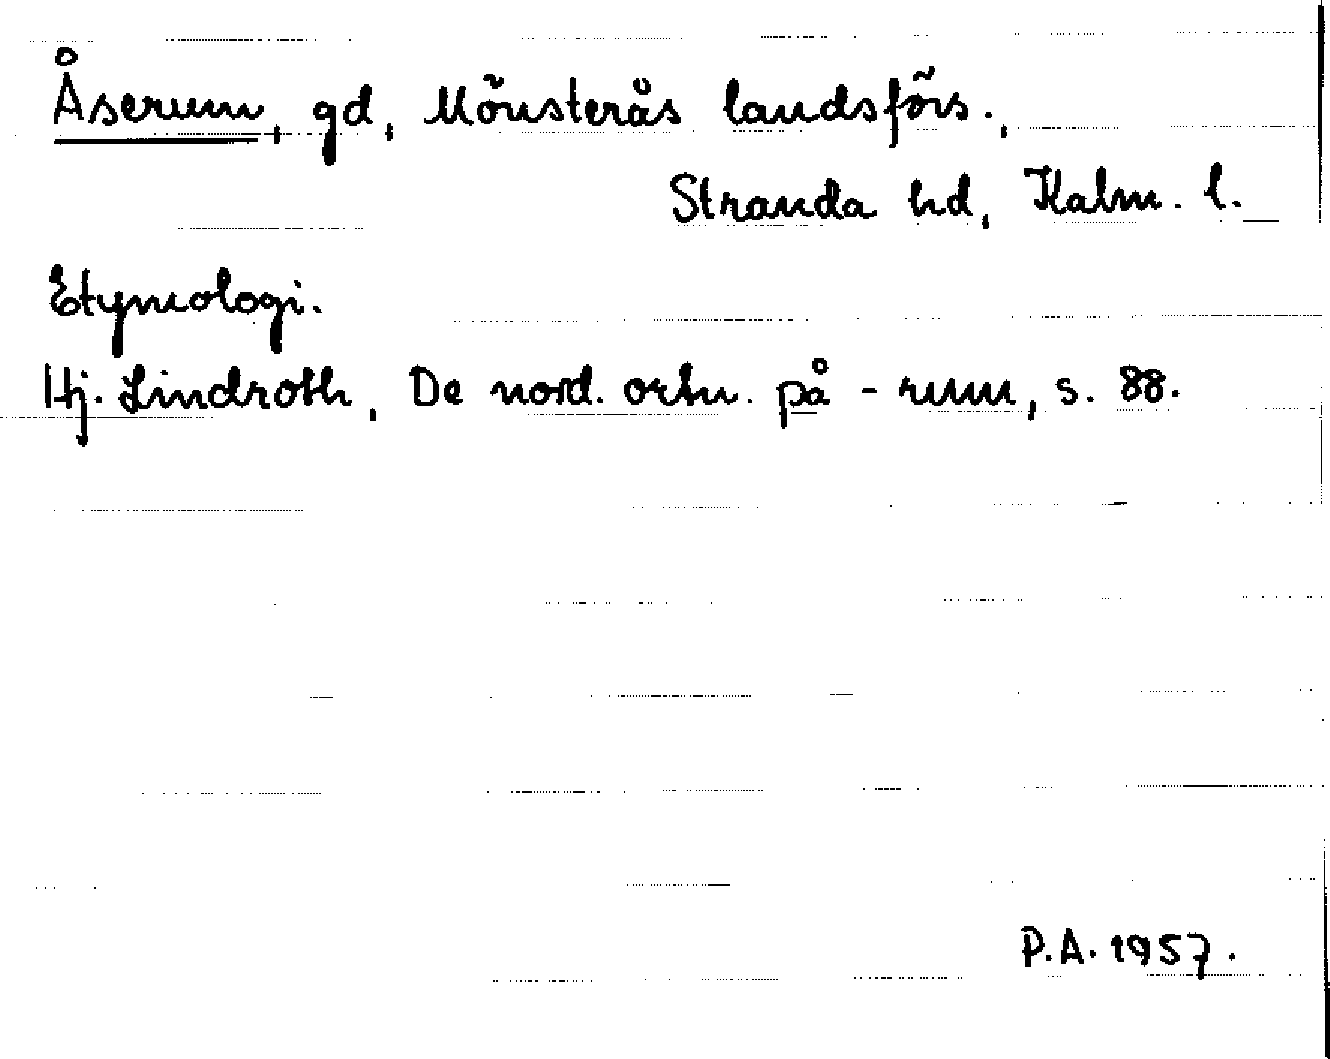 Åserum, gd, Mönsterås landsförs.,
Stranda hd, Kalm. l.
Etymologi.
Hj. Lindroth, De nord. ortn. på -rum, s. 88.
P.A. 1957.